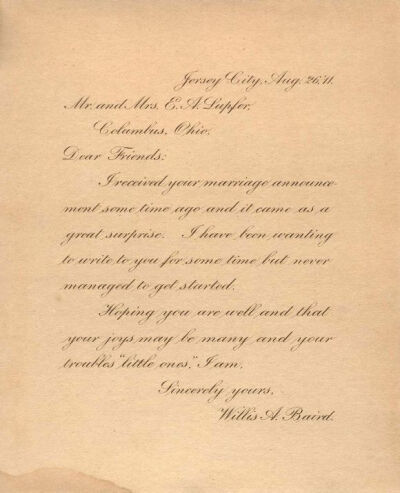 Jersey City, Aug. 26, '11.
Mr. and Mrs. E. A. Lupfer,
Columbus, Ohio.
Dear Friends:
I received your marriage announce-
ment some time ago and it came as a
great surprise. I have been wanting
to write to you for some time but never
managed to get started.
Hoping you are well and that
your joys may be many and your
troubles "little ones," I am,
Sincerely yours,
Willis A. Baird.